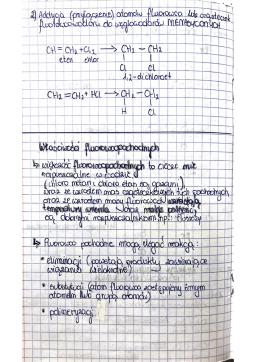 2) Addycja (przyłączenie) atomów fluorowca lub cząsteczek
fluorowcowodoru do węglowodorów NIENASYCONYCH
CH = CH2 + Cl2 → CH2 - CH2
eten chlor Cl Cl
1,2-dichloroetan
CH2 = CH2 + HCl → CH2 - CH2
H Cl
Właściwości fluorowcopochodnych
↳ większość fluorowcopochodnych to ciecze nie
rozpuszczalne w wodzie
(chlorometan i chloroetan są gazami),
wraz ze wzrostem mas cząsteczkowych tych pochodnych
oraz ze wzrostem masy fluorowca wzrastają
temperatury wrzenia
są dobrymi rozpuszczalnikami np. tłuszczy
↳ Fluorowco pochodne mogą ulegać reakcji:
• eliminacji (powstają produkty zawierające
wiązania wielokrotne)
• substytucji (atom fluorowca zastąpiony innym
atomem lub grupą atomów)
• polimeryzacji